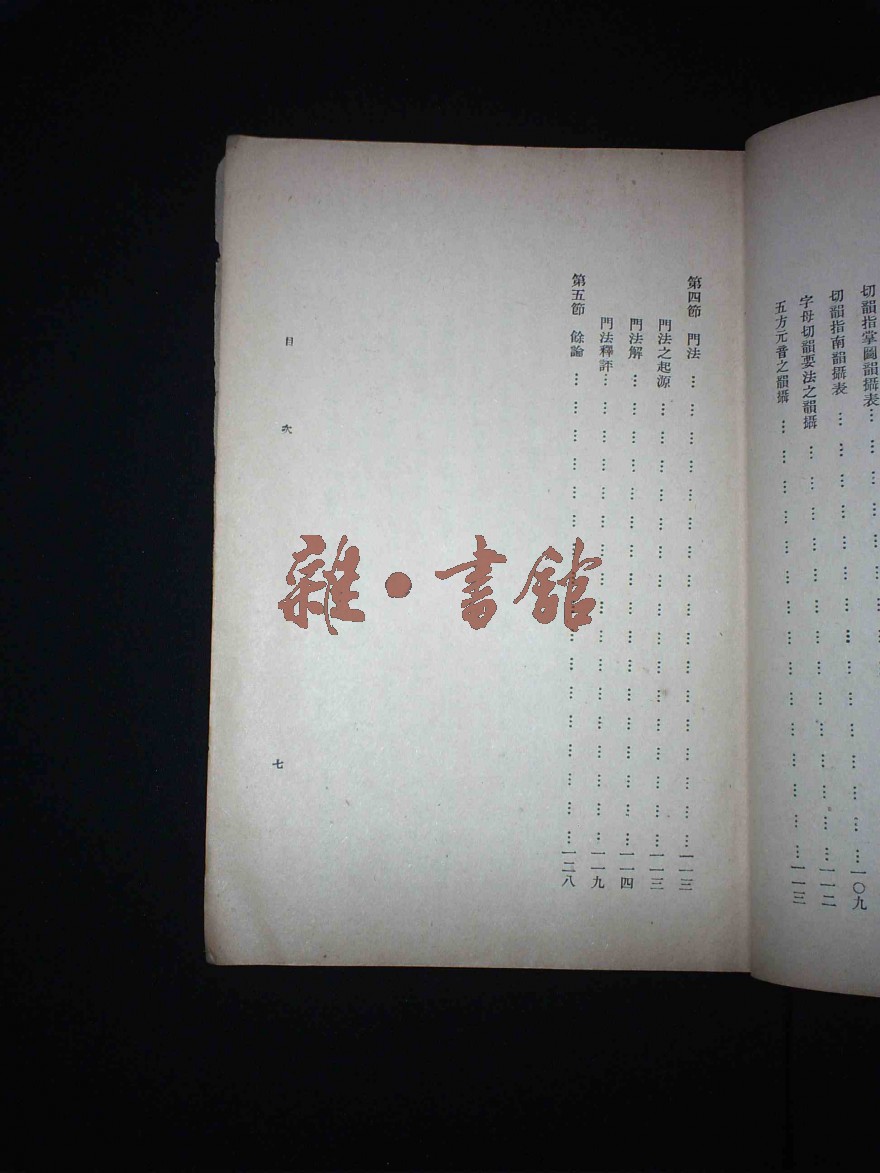 切韻指掌圖韻攝表………………………
切韻指南韻攝表………………………一〇九
字母切韻要法之韻攝………………………一一二
五方元音之韻攝………………………一一三
第四節 門法………………………一一三
門法之起源………………………一一三
門法解………………………一一四
門法釋評………………………一一九
第五節 餘論………………………一二八
目次
七
雜·書館